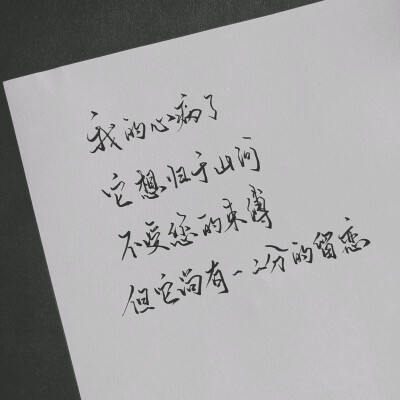 我的心病了
它想归于山河
不受您的束缚
但它尚有一二分的留恋